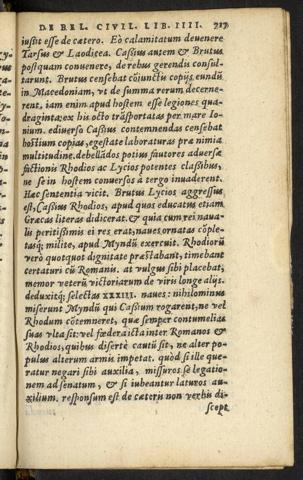 DE BEL. CIVIL. LIB. IIII. 717
iussit esse de cætero. Eò calamitatum deuenere
Tarsus & Laodicea. Cassius autem & Brutus
postquam conuenere, de rebus gerendis consul-
tarunt. Brutus censebat cõiunctis copijs, eundũ
in Macedoniam, vt de summa rerum decerne-
rent, iam enim apud hostem esse legiones qua-
draginta: ex his octo trãsportatas per mare Io-
nium. ediuerso Cassius contemnendas censebat
hostium copias, egestate laboraturas præ nimia
multitudine. debellãdos potius fautores aduersæ
factionis Rhodios ac Lycios potentes classibus,
ne se in hostem conuersos à tergo inuaderent.
Hæc sententia vicit. Brutus Lycios aggressus
est, Cassius Rhodios, apud quos educatus etiam
Græcas literas didicerat. & quia cum rei naua-
lis peritissimis ei res erat, naues ornatas cõple-
tasq; milite, apud Myndũ exercuit. Rhodiorũ
verò quotquot dignitate præstabant, timebant
certaturi cũ Romanis. at vulgus sibi placebat,
memor veterũ victoriarum de viris longe alijs.
deduxitq; selectas XXXIII. naues: nihilominus
miserunt Myndũ qui Cassium rogarent, ne vel
Rhodum cõtemneret, quæ semper contumelias
suas vlta sit: vel fœdera icta inter Romanos &
Rhodios, quibus disertè cautũ sit, ne alter po-
pulus alterum armis impetat. quòd si ille que-
ratur negari sibi auxilia, missuros se legatio-
nem ad senatum, & si iubeantur laturos au-
xilium. responsum est de cæteris non verbis di-
scept